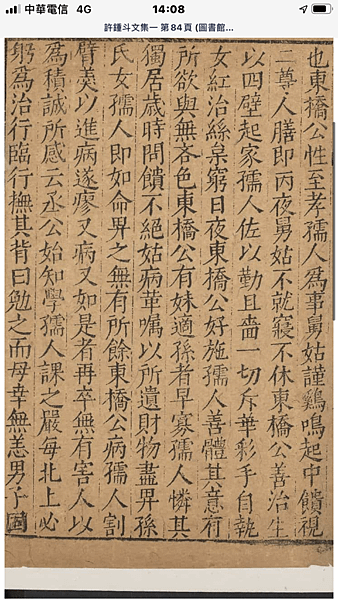 中華電信 4G 14:08
許鍾斗文集一 第84頁 (圖書館...
也東橋公性至孝孺人爲事舅姑謹鷄鳴起中饋視
二尊人膳即丙夜舅姑不就寢不休東橋公善治生
以四壁起家孺人佐以勤且嗇一切斥華彩手自執
女紅治絲枲窮日夜東橋公好施孺人善體其意有
所欲與無吝色東橋公有妹適孫者早寡孺人憐其
獨居歲時問饋不絕姑病革囑以所遺財物盡畀孫
氏女孺人即如命畀之無有所餘東橋公病孺人割
臂羹以進病遂瘳又病又如是者再卒無有害人以
爲積誠所感云丞公始知學孺人課之嚴每北上必
躬爲治行臨行撫其背曰勉之而母幸無恙男子國